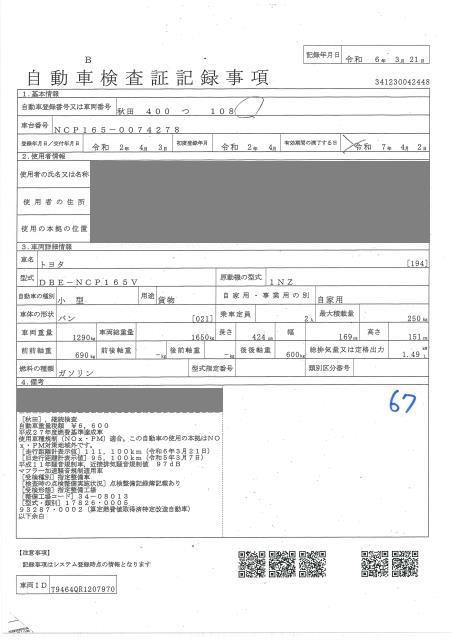 B
記録年月日 令和 6年 3月 21日
自動車検査証記録事項
341230042448
1.基本情報
自動車登録番号又は車両番号 秋田 400 つ 108
車台番号 NCP165-0074278
登録年月日/交付年月日 令和 2年 4月 3日 初度登録年月 令和 2年 4月 有効期間の満了する日 令和 7年 4月 2日
2.使用者情報
使用者の氏名又は名称
使用者の住所
使用の本拠の位置
3.車両詳細情報
車名 トヨタ [194]
型式 DBE-NCP165V 原動機の型式 1NZ
自動車の種別 小型 用途 貨物 自家用・事業用の別 自家用
車体の形状 バン [021] 乗車定員 2人 最大積載量 250kg
車両重量 1290kg 車両総重量 1650kg 長さ 424cm 幅 169cm 高さ 151cm
前前軸重 690kg 前後軸重 -kg 後前軸重 -kg 後後軸重 600kg 総排気量又は定格出力 1.49 kW L
燃料の種類 ガソリン 型式指定番号 類別区分番号
4.備考
67
[秋田],継続検査
自動車重量税額 ¥6,600
平成27年度燃費基準達成車
使用車種規制(NOx・PM)適合,この自動車の使用の本拠はNO
x・PM対策地域外です。
[走行距離計表示値]111,100km(令和6年3月21日)
[旧走行距離計表示値]95,100km(令和5年3月7日)
平成11年騒音規制車,近接排気騒音規制値 97dB
マフラー加速騒音規制適用車
[受検種別]指定整備車
[検査時の点検整備実施状況]点検整備記録簿記載あり
[受検形態]指定整備工場
[整備工場コード]34-08013
[型式・類別]17826・0005
93287・0002(算定燃費値取得済特定改造自動車)
以下余白
【注意事項】
記録事項はシステム登録時点の情報となります
車両ID T9464QR1207970